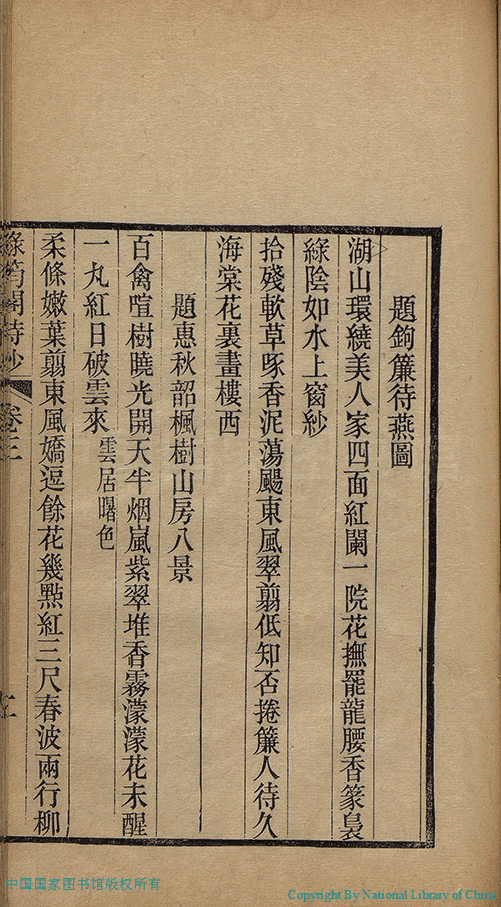 題鉤簾待燕圖
湖山環繞美人家四面紅闌一院花撫罷龍腰香篆裊
綠陰如水上窗紗
拾殘軟草啄香泥蕩颺東風翠翦低知否捲簾人待久
海棠花裏畫樓西
題惠秋韶楓樹山房八景
百禽喧樹曉光開天半烟嵐紫翠堆香霧濛濛花未醒
一丸紅日破雲來 雲居曙色
柔條嫩葉翦東風嬌逗餘花幾點紅三尺春波兩行柳
綠筠閣詩鈔 卷三
中国国家图书馆版权所有
Copyright By National Library of China